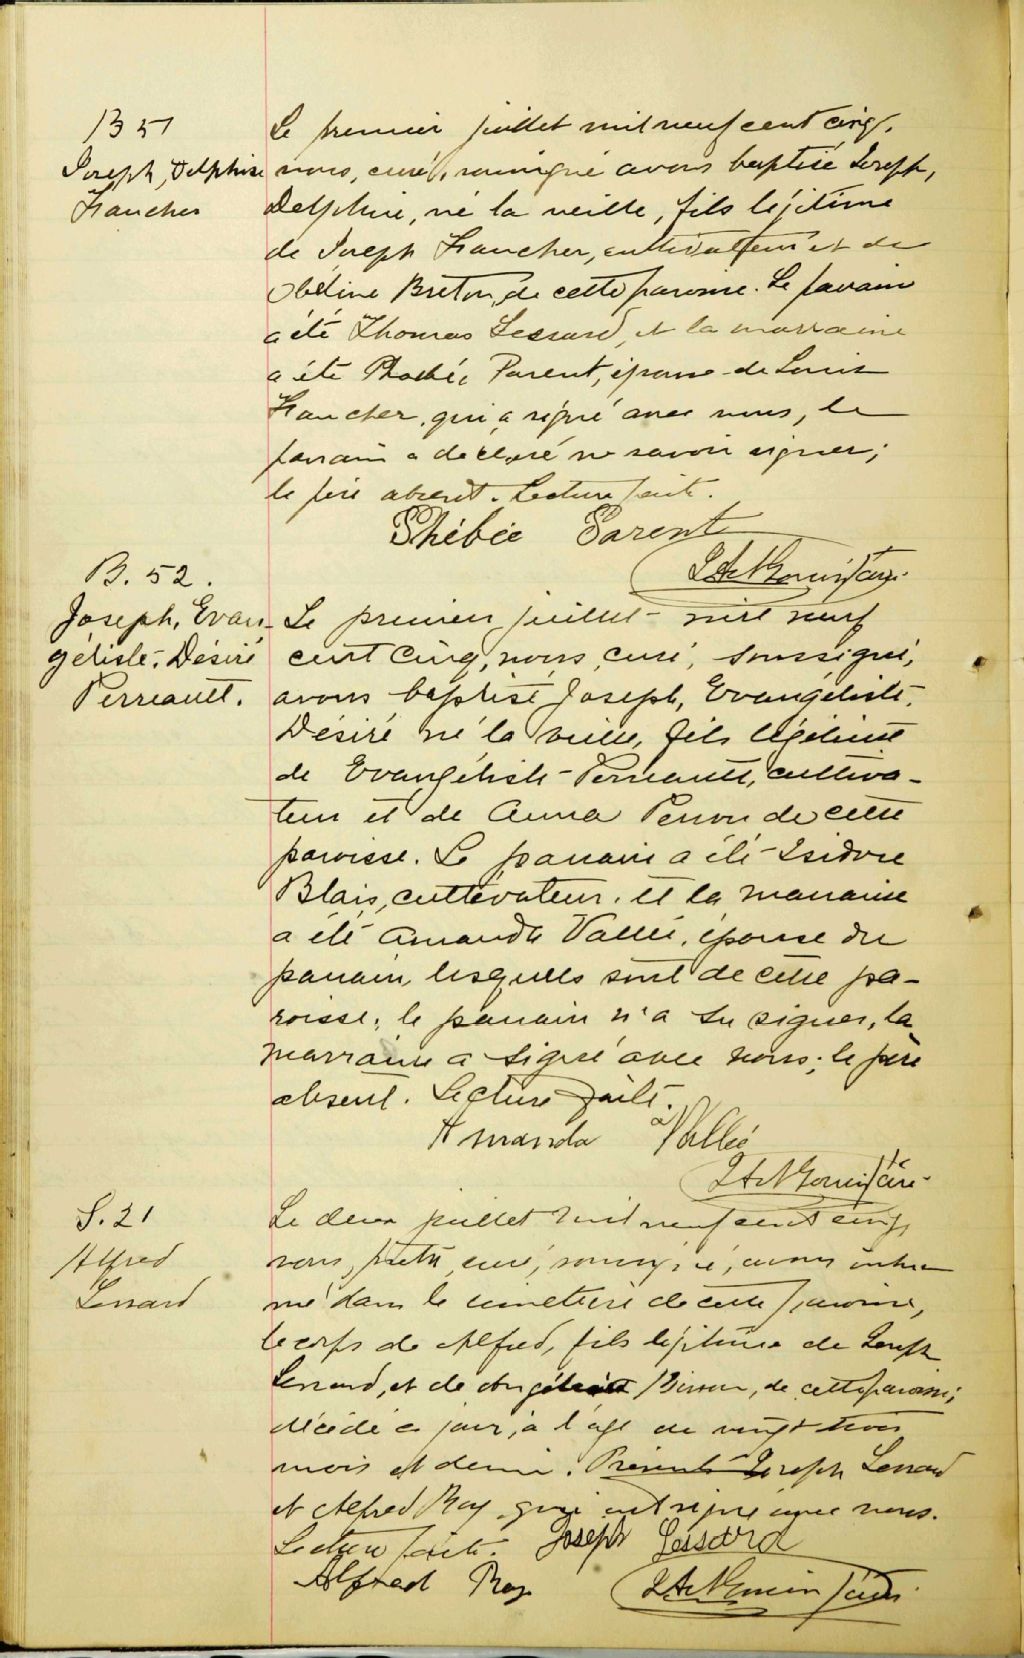 B 51
Joseph, Delphise
Faucher
Le premier juillet mil neuf cent cinq,
nous, curé, soussigné avons baptisé Joseph,
Delphise, né la veille, fils légitime
de Joseph Faucher, cultivateur et de
Obéline Breton, de cette paroisse. Le parrain
a été Thomas Lessard, et la marraine
a été Phébée Parent, épouse de Louis
Faucher, qui a signé avec nous, le
parrain a déclaré ne savoir signer;
le père absent. Lecture faite.
Phébée Parent
B. 52.
Joseph, Evan-
géliste, Désiré
Perreault.
Le premier juillet mil neuf
cent cinq, nous, curé, soussigné,
avons baptisé Joseph, Evangéliste,
Désiré né la veille, fils légitime
de Evangéliste Perreault, cultiva-
teur et de Anna Perron de cette
paroisse. Le parrain a été Isidore
Blais, cultivateur, et la marraine
a été Amanda Vallée, épouse du
parrain, lesquels sont de cette pa-
roisse; le parrain n'a su signer, la
marraine a signé avec nous; le père
absent. Lecture faite.
Amanda Vallée
ptre curé
S. 21
Alfred
Lessard
Le deux juillet mil neuf cent cinq,
nous, prêtre, curé, soussigné, avons inhu-
mé dans le cimetière de cette paroisse,
le corps de Alfred, fils légitime de Joseph
Lessard, et de Bisson, de cette paroisse;
décédé ce jour, à l'âge de vingt trois
mois et demi. Présents Joseph Lessard
et Alfred Roy qui ont signé avec nous.
Lecture faite. Joseph Lessard
Alfred Roy